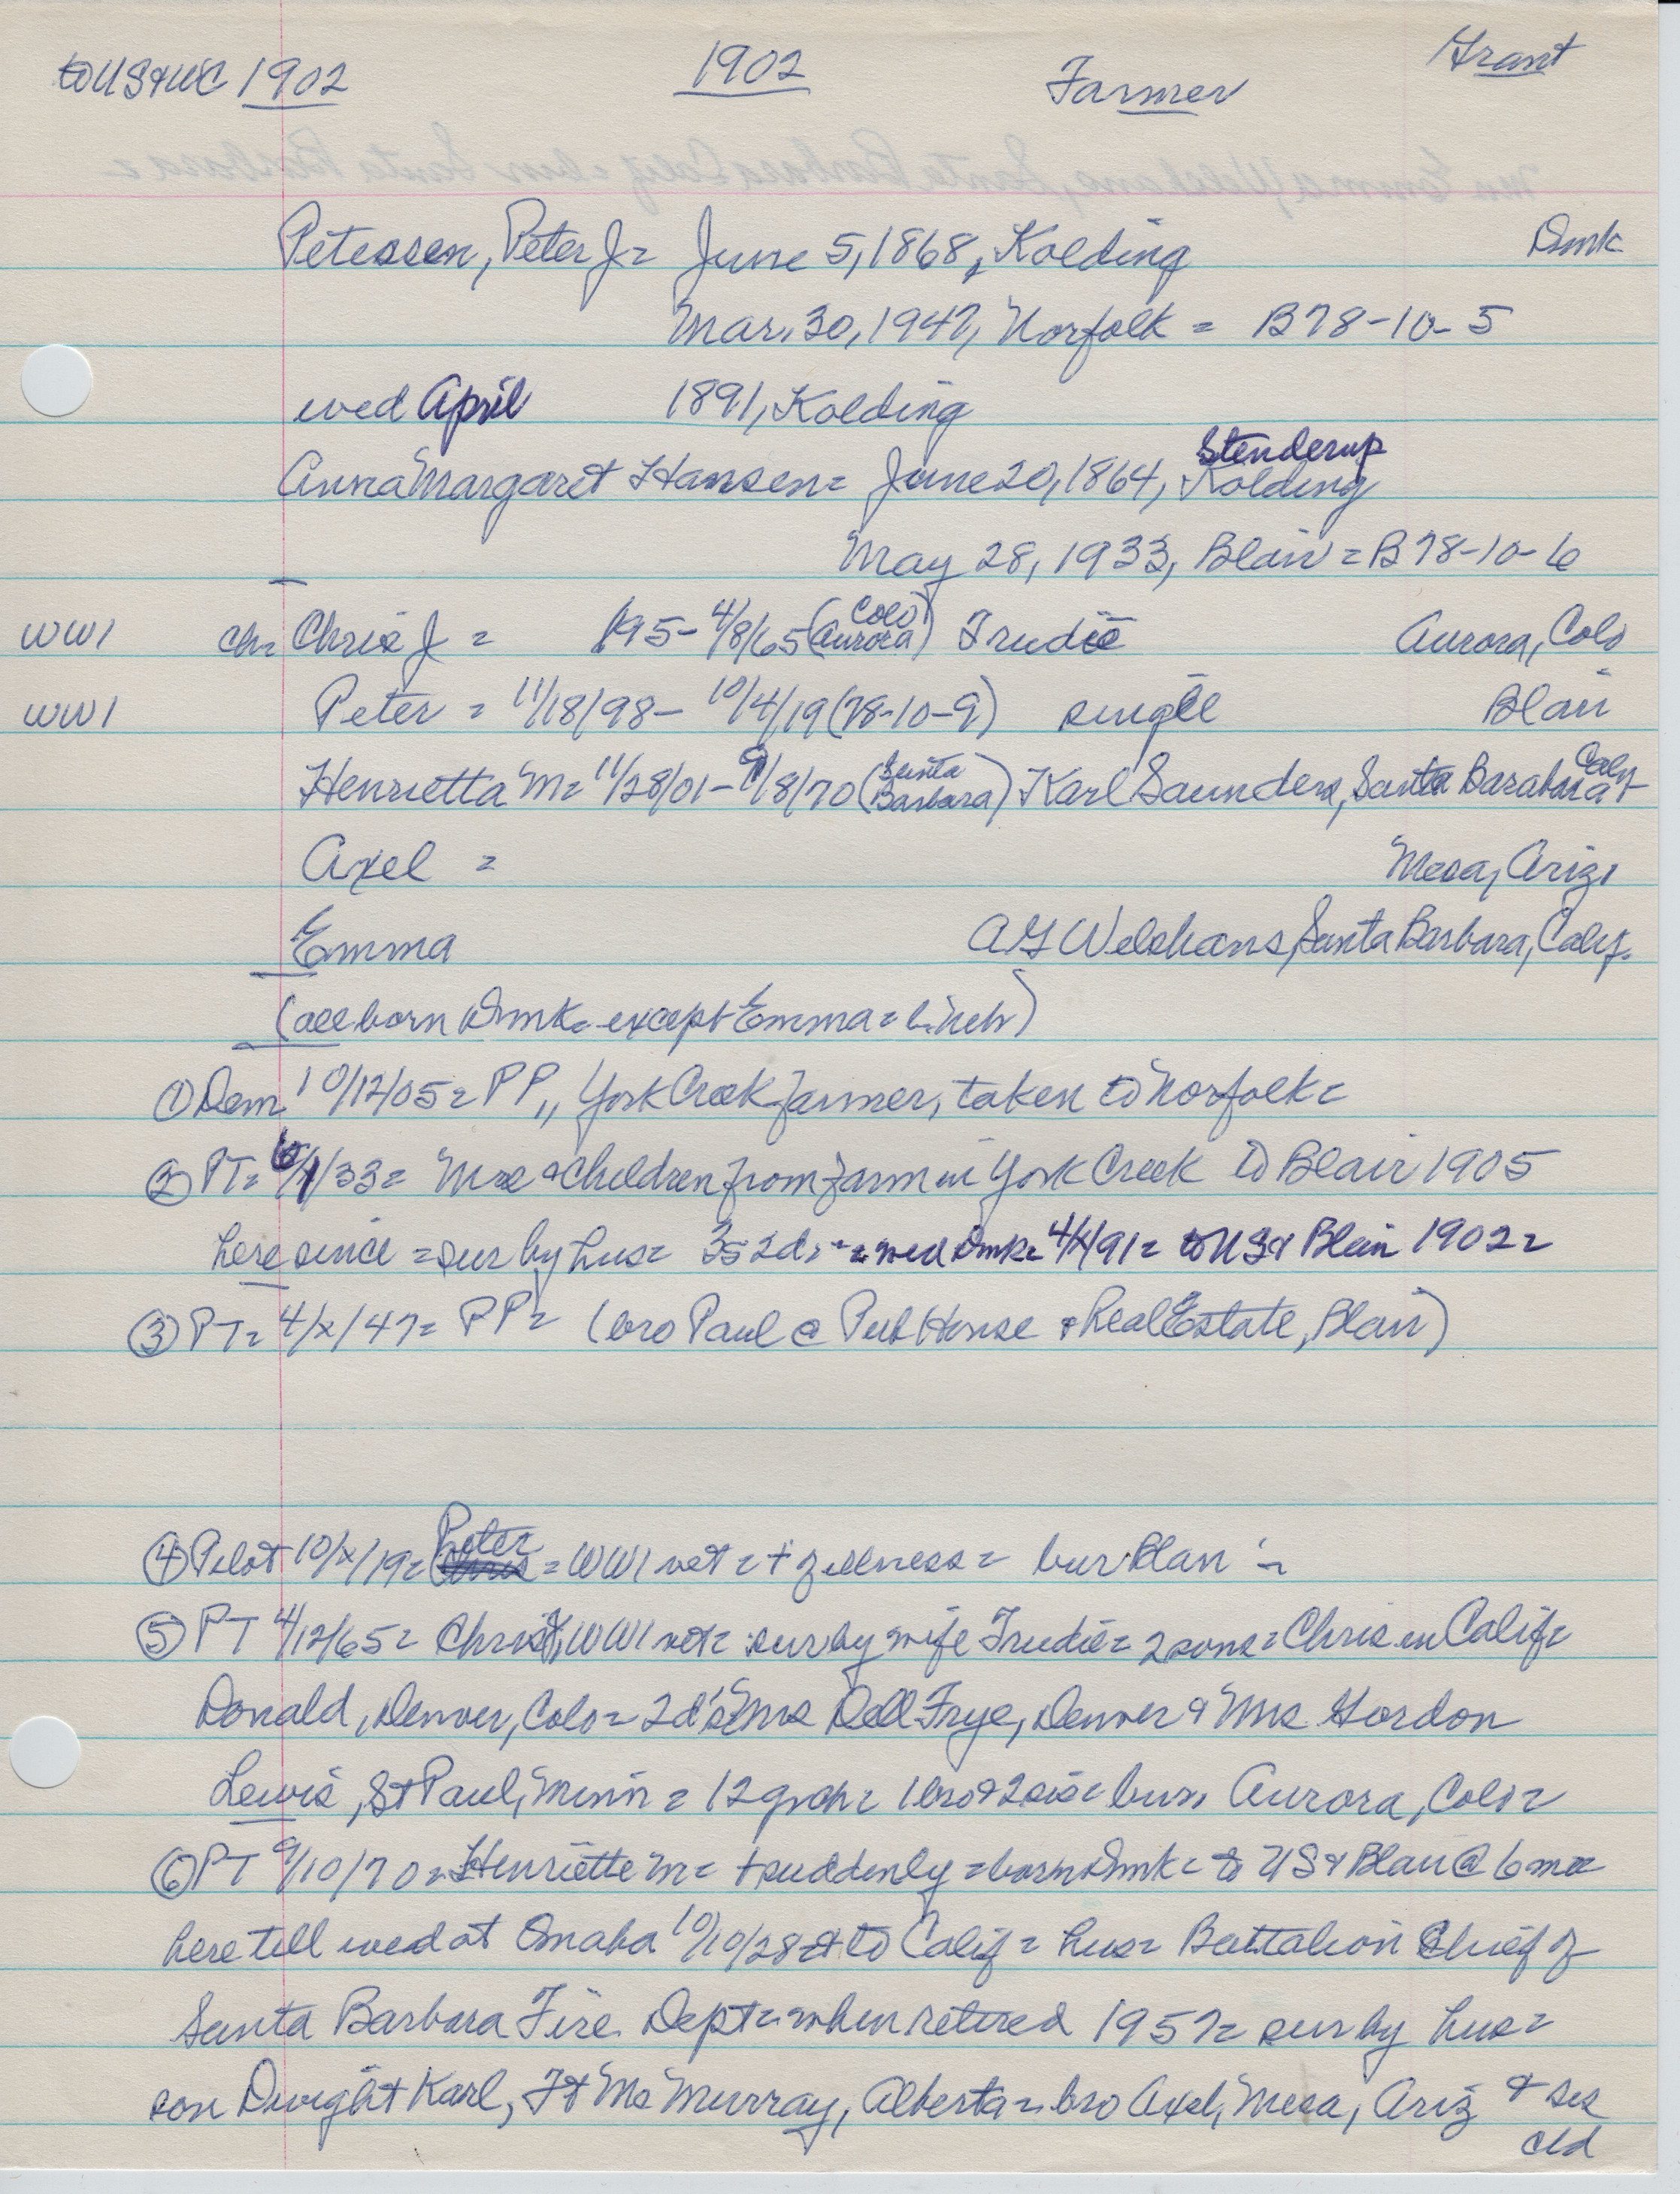 to US & WC 1902 1902 Farmer Grant
Petersen, Peter J = June 5, 1868, Kolding Dmk
Mar. 30, 1947, Norfolk = B78-10-5
wed April 1891, Kolding
Stenderup
Anna Margaret Hansen = June 20, 1864, Kolding
May 28, 1933, Blair = B78-10-6
WW1 ch= Chris J = 195- 4/8/65 (Aurora Colo) Trudie Aurora, Colo
WW1 Peter = 11/18/98 - 10/4/19 (78-10-9) single Blair
Henrietta M = 11/28/01 - 9/8/70 (Santa Barbara) Karl Saunders, Santa Barabara Calif
Axel = Mesa, Ariz,
Emma AG Welshans, Santa Barbara, Calif.
(all born Dmk = except Emma = )
① Dem 10/12/05 = PP,, York Creek farmer, taken to Norfolk =
② PT = 6/1/33 = Mrs & Children from farm in York Creek to Blair 1905
here since = sur by hus = 3s 2ds = wed Dmk = 4/x/91 = to US & Blair 1902 =
③ PT = 4/x/47 = PP = (bro Paul @ Pub House & Real Estate, Blair)
④ Pilot 10/x/19 = Peter = WW1 vet = + of illness = bur Blair =
⑤ PT 4/12/65 = Chris J, WW1 vet = sur by wife Trudie = 2 sons = Chris in Calif =
Donald, Denver, Colo = 2 d's Mrs Dell Frye, Denver & Mrs Gordon
Lewis, St Paul, Minn = 12 grch = 1 bro & 2 sis = bur, Aurora, Colo =
⑥ PT 9/10/70 = Henriette M = + suddenly = born Dmk = to US & Blair @ 6 mos
here till wed at Omaha 10/10/28 & to Calif = hus = Battalion Chief of
Santa Barbara Fire Dept = when retired 1957 = sur by hus =
son Dwight Karl, Ft Mc Murray, Alberta = bro Axel, Mesa, Ariz & sis
ctd